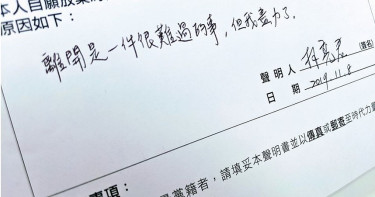 本人自願放棄
原因如下：
離開是一件很難過的事，但我盡力了。
聲明人 (簽名)
日期 2019.11.8
事項：
黨籍者，請填妥本聲明書並以傳真或郵寄至時代力量